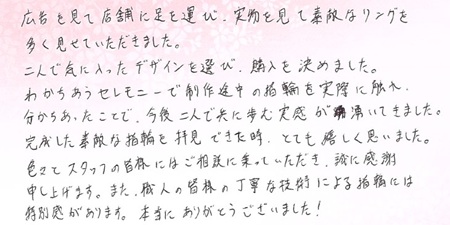 広告を見て店舗に足を運び、実物を見て素敵なリングを
多く見せていただきました。
二人で気に入ったデザインを選び、購入を決めました。
わかちあうセレモニーで制作途中の指輪を実際に触れ、
分かちあったことで、今後二人で共に歩む実感が湧いてきました。
完成した素敵な指輪を拝見できた時、とても嬉しく思いました。
色々とスタッフの皆様にはご相談に乗っていただき、誠に感謝
申し上げます。また、職人の皆様の丁寧な技術による指輪には
特別感があります。本当にありがとうございました！